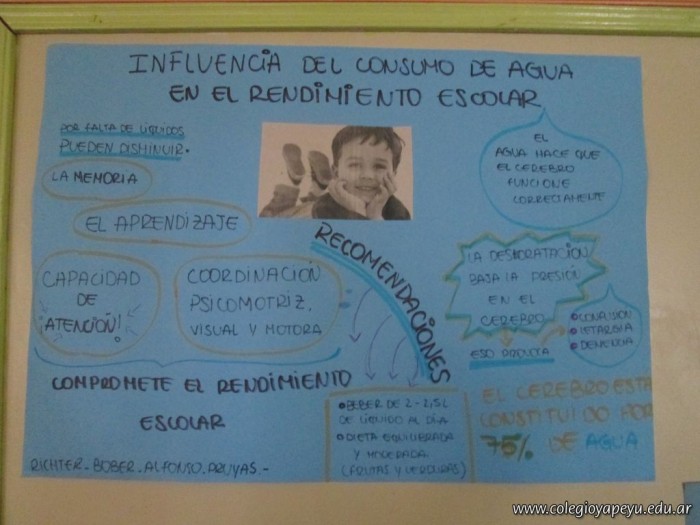 INFLUENCIA DEL CONSUMO DE AGUA
EN EL RENDIMIENTO ESCOLAR
POR FALTA DE LÍQUIDOS
PUEDEN DISMINUIR.
LA MEMORIA
EL APRENDIZAJE
CAPACIDAD
DE
¡ATENCIÓN!
COORDINACIÓN
PSICOMOTRIZ.
VISUAL Y MOTORA
COMPROMETE EL RENDIMIENTO
ESCOLAR
RICHTER-BOBER-ALFONSO-PRUYAS.-
RECOMENDACIONES
• BEBER DE 2-2,5L
DE LÍQUIDO AL DÍA
• DIETA EQUILIBRADA
Y MODERADA.
(FRUTAS Y VERDURAS)
EL
AGUA HACE QUE
EL CEREBRO
FUNCIONE
CORRECTAMENTE
LA DESHIDRATACIÓN
BAJA LA PRESIÓN
EN EL
CEREBRO
ESO PRODUCE
• CONFUSIÓN
• LETARGIA
• DEMENCIA
EL CEREBRO ESTA
CONSTITUIDO POR
75% DE AGUA
www.colegioyapeyu.edu.ar